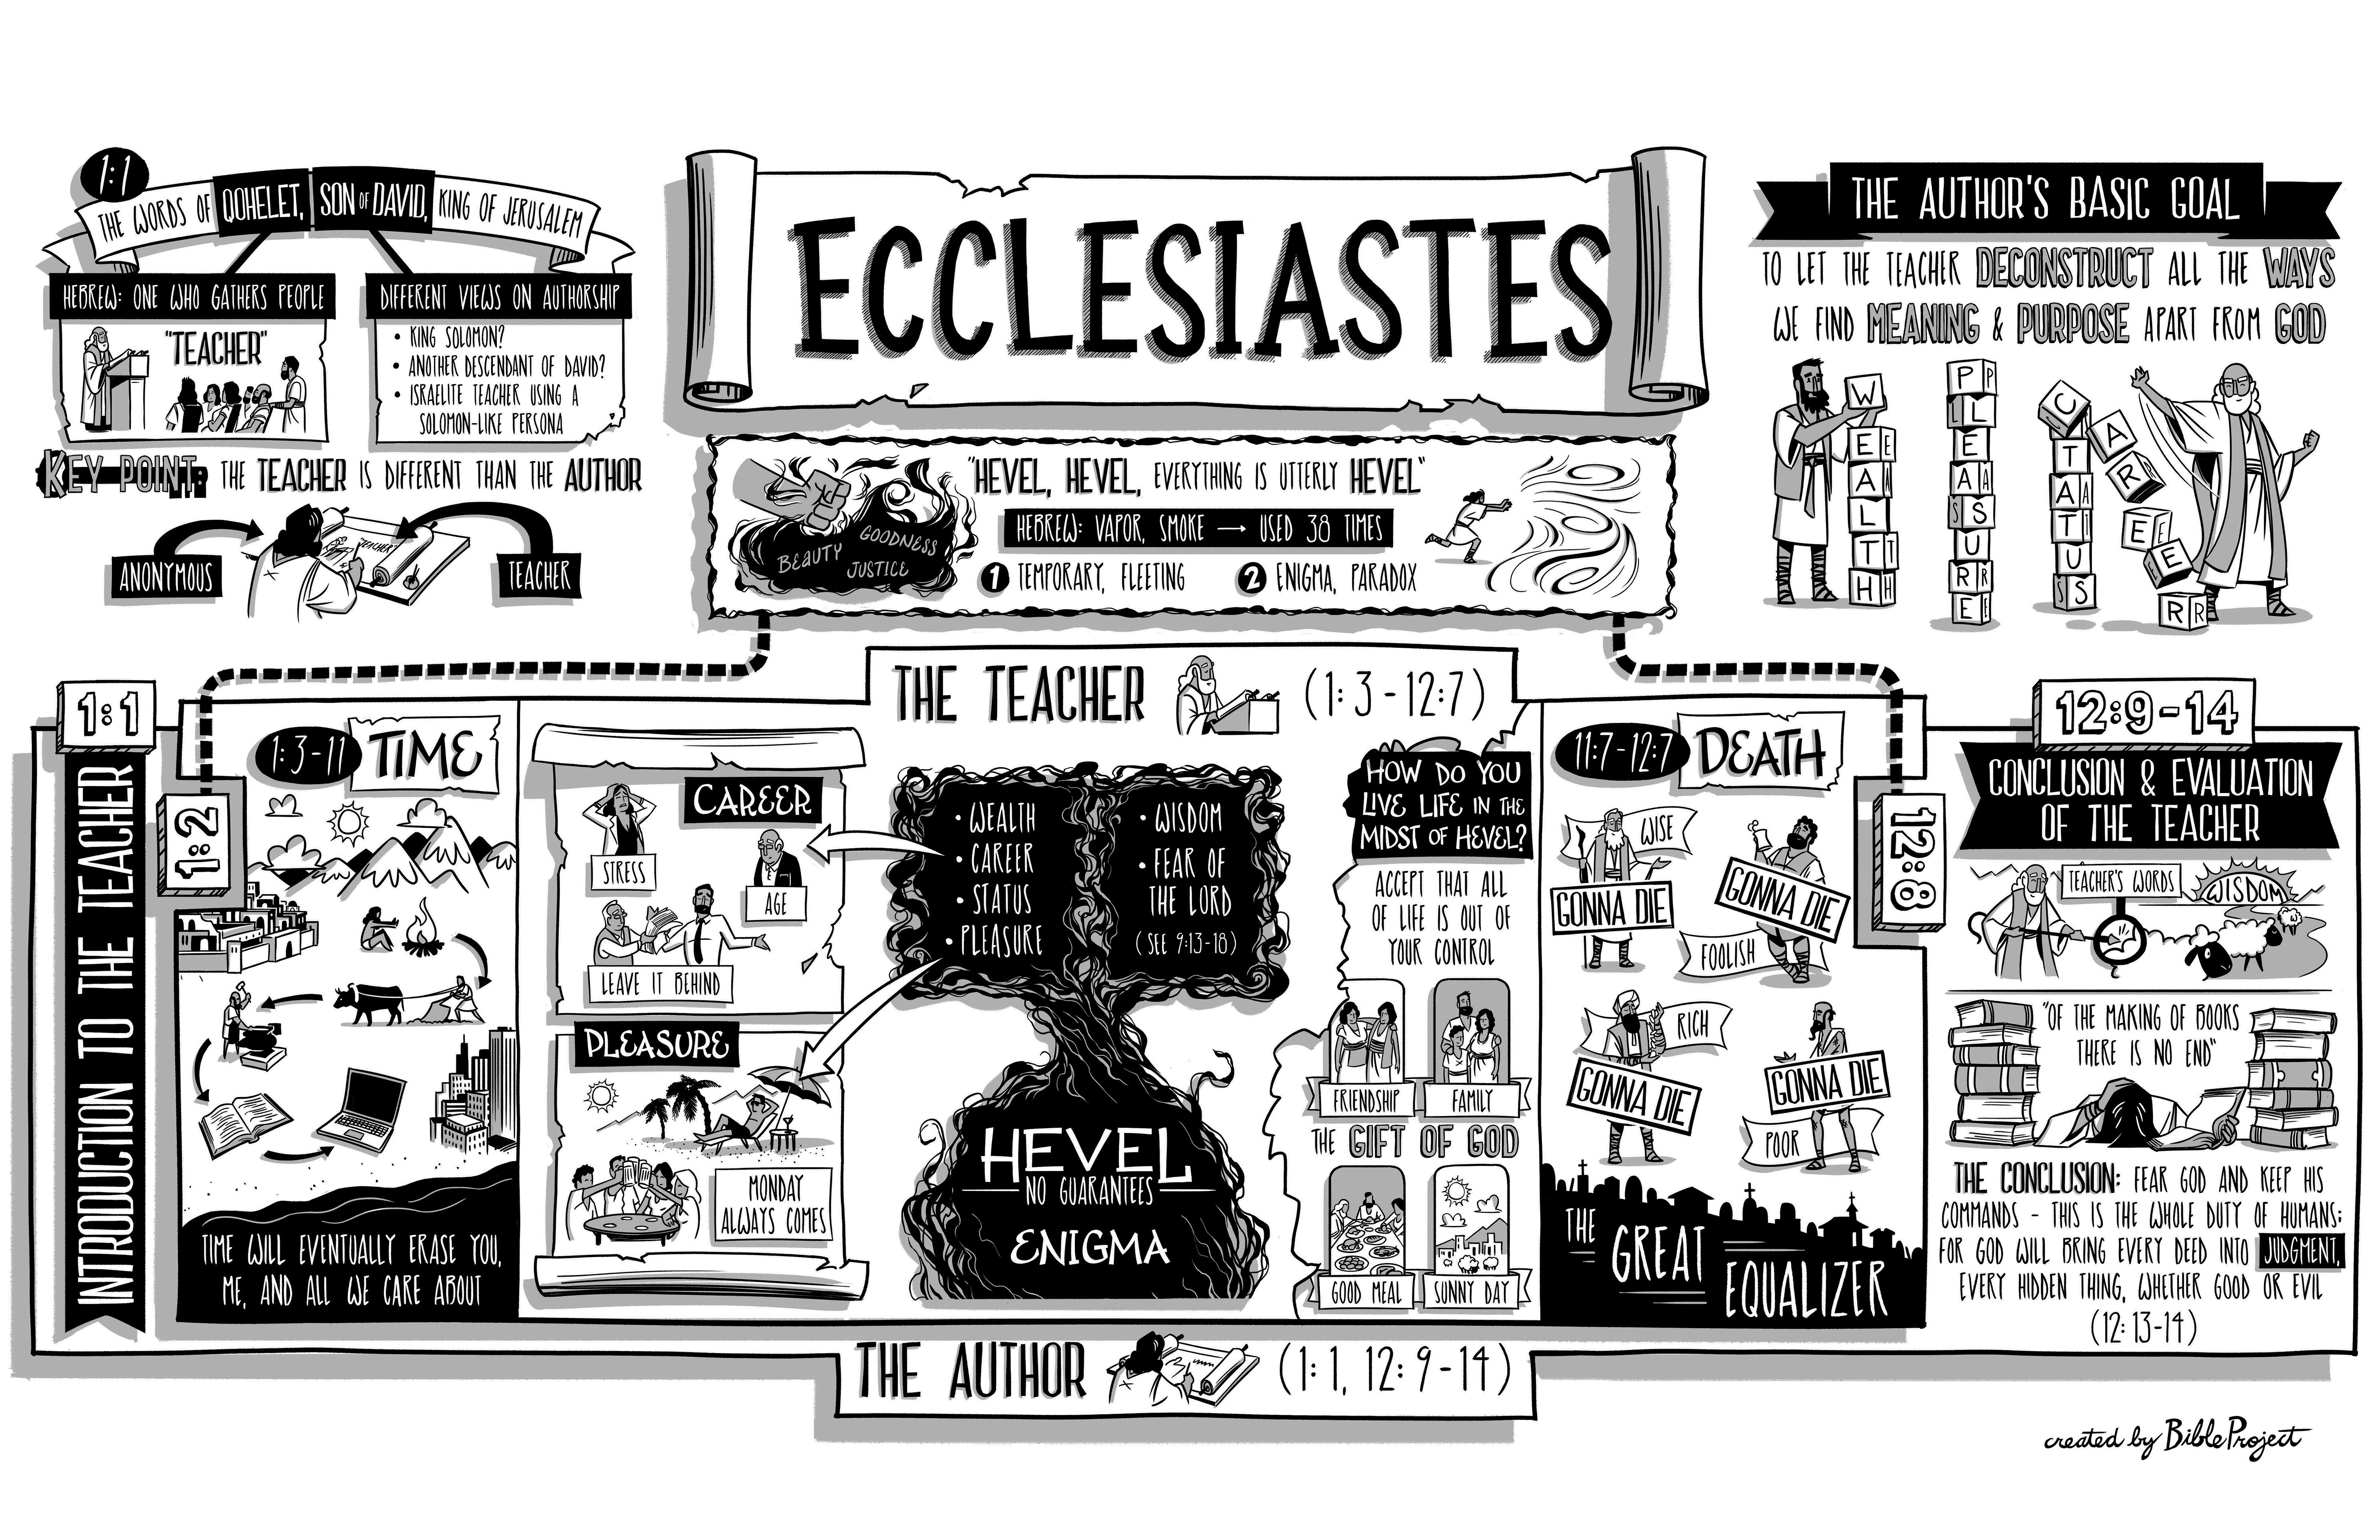 1:1
THE WORDS OF QOHELET, SON OF DAVID, KING OF JERUSALEM
HEBREW: ONE WHO GATHERS PEOPLE
"TEACHER"
DIFFERENT VIEWS ON AUTHORSHIP
• KING SOLOMON?
• ANOTHER DESCENDANT OF DAVID?
• ISRAELITE TEACHER USING A
SOLOMON-LIKE PERSONA
KEY POINT: THE TEACHER IS DIFFERENT THAN THE AUTHOR
ANONYMOUS
"TEACHER"
TEACHER
ECCLESIASTES
"HEVEL, HEVEL, EVERYTHING IS UTTERLY HEVEL"
HEBREW: VAPOR, SMOKE → USED 38 TIMES
1 TEMPORARY, FLEETING
2 ENIGMA, PARADOX
BEAUTY
GOODNESS
JUSTICE
THE AUTHOR'S BASIC GOAL
TO LET THE TEACHER DECONSTRUCT ALL THE WAYS
WE FIND MEANING & PURPOSE APART FROM GOD
WEALTH
PLEASURE
STATUS
CAREER
THE TEACHER (1:3-12:7)
1:1
INTRODUCTION TO THE TEACHER
1:2
1:3-11
TIME
TIME WILL EVENTUALLY ERASE YOU,
ME, AND ALL WE CARE ABOUT
CAREER
STRESS
AGE
LEAVE IT BEHIND
PLEASURE
MONDAY
ALWAYS COMES
• WEALTH
• CAREER
• STATUS
• PLEASURE
• WISDOM
• FEAR OF
THE LORD
(SEE 9:13-18)
HEVEL
NO GUARANTEES
ENIGMA
HOW DO YOU
LIVE LIFE IN THE
MIDST OF HEVEL?
ACCEPT THAT ALL
OF LIFE IS OUT OF
YOUR CONTROL
FRIENDSHIP
FAMILY
THE GIFT OF GOD
GOOD MEAL
SUNNY DAY
11:7-12:7
DEATH
WISE
GONNA DIE
GONNA DIE
FOOLISH
RICH
GONNA DIE
GONNA DIE
POOR
THE
GREAT
EQUALIZER
12:8
12:9-14
CONCLUSION & EVALUATION
OF THE TEACHER
TEACHER'S WORDS
WISDOM
"OF THE MAKING OF BOOKS
THERE IS NO END"
THE CONCLUSION: FEAR GOD AND KEEP HIS
COMMANDS - THIS IS THE WHOLE DUTY OF HUMANS;
FOR GOD WILL BRING EVERY DEED INTO JUDGMENT,
EVERY HIDDEN THING, WHETHER GOOD OR EVIL
(12:13-14)
THE AUTHOR (1:1, 12:9-14)
created by BibleProject